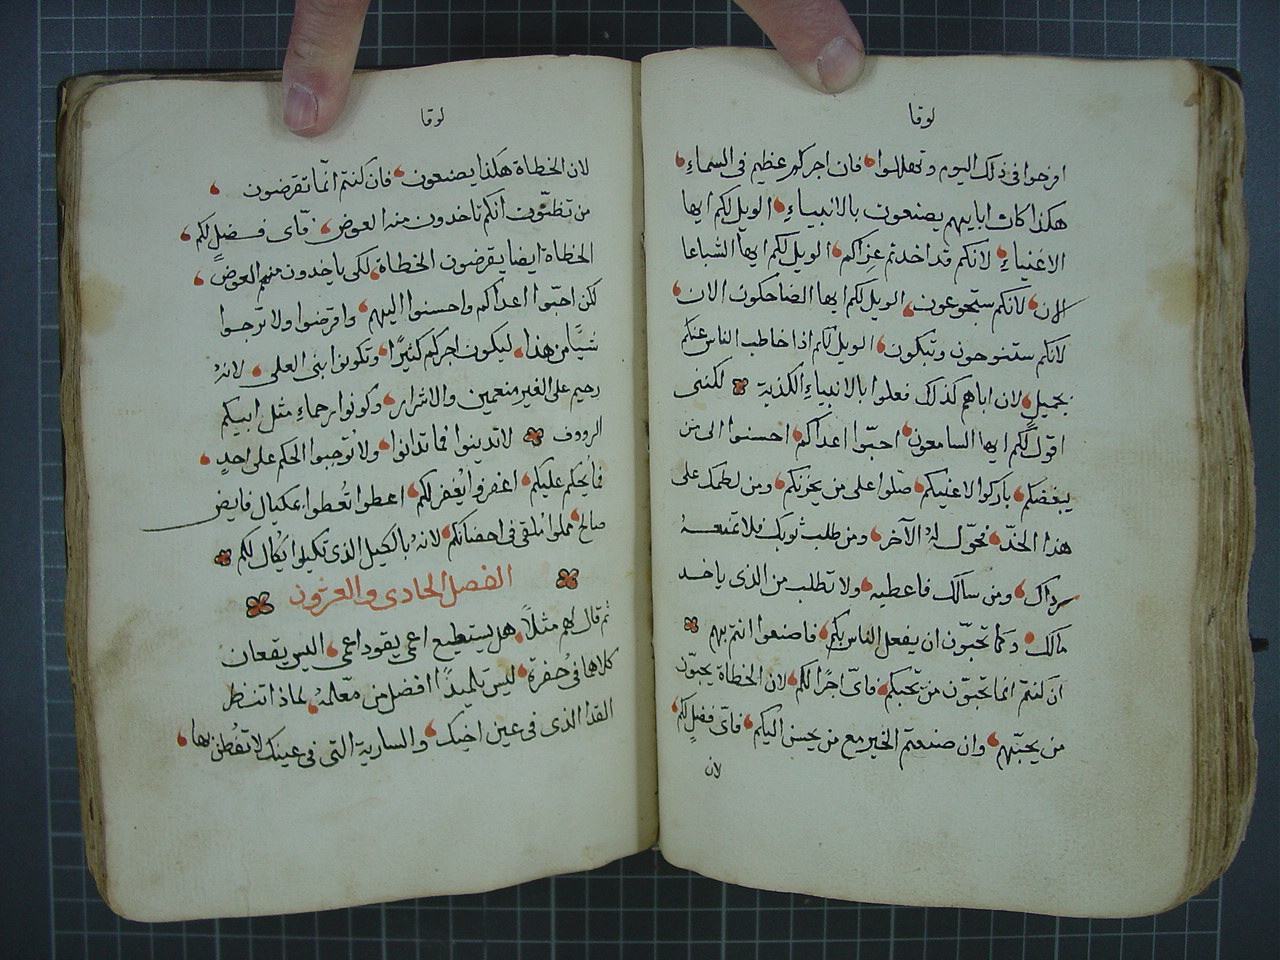 لوقا
افرحوا في ذلك اليوم وتهللوا فان اجركم عظيم في السماء
هكذا كان اباييهم يصنعون بالانبياء الويل لكم ايها
الاغنياء لانكم قد اخدتم عزاكم الويل لكم ايها الشباعا
الان لانكم ستجوعون الويل لكم ايها الضاحكون الان
لانكم ستنوحون وتبكون الويل لكم اذا خاطب الناس عنكم
بجميل لان اباهم كذلك فعلوا بالانبياء الكذبة لكننى
اقول لكم ايها السامعون احبّوا اعداكم احسنوا الى من
يبغضكم باركوا لاعنيكم صلّوا على من يحزنكم ومن لطمك على
هذا الخدّ فحوّل له الآخر ومن طلب ثوبك فلا تمنعه
رداك ومن سالك فاعطيه ولا تطلب من الذى ياخد
مالك وكما تحبّون ان يفعل الناس بكم فاصنعوا انتم بهم
ان كنتم انما تحبّون من يحبكم فاىّ اجرًا لكم لان الخطاة يحبّون
من يحبّهم وان صنعتم الخير مع من يحسن اليكم فاىّ فضلٍ لكم
لان
لوقا
لان الخطاة هكذا يصنعون فان كنتم انّما تقرضون
من تظنّون انكم تاخدون منه العوض فاى فضلٍ لكم
الخطاة ايضا يقرضون الخطاة لكى ياخدون منهم العوض
لكن احبّوا اعداكم واحسنوا اليهم واقرضوا ولا ترجوا
شيًّا من هذا ليكون اجركم كثيرًا وتكونوا بنى العلى لانهُ
رحيم على الغير منعمين والاشرار وكونوا رحماء مثل ابيكم
الرووف لا تدينوا فما تدانوا ولا تُوجبوا الحكم على احدٍ
فما يُحكم عليكم اغفروا يُغفر لكم اعطوا تُعطوا بمكيال فايض
صالح مملوا مُلقى فى احضانكم لانهُ بالكيل الذى تكيلوا يُكال لكم
الفصل الحادى والعشرون
ثم قال لهم مثلًا هل يستطيع اعمى يقود اعمى اليس يقعان
كلاهما فى حُفرة ليس تلميدًا افضل من معّلمهُ لماذا تنظر
القدا الذى فى عين اخيك والسارية التى فى عينك لا تفُطن بها